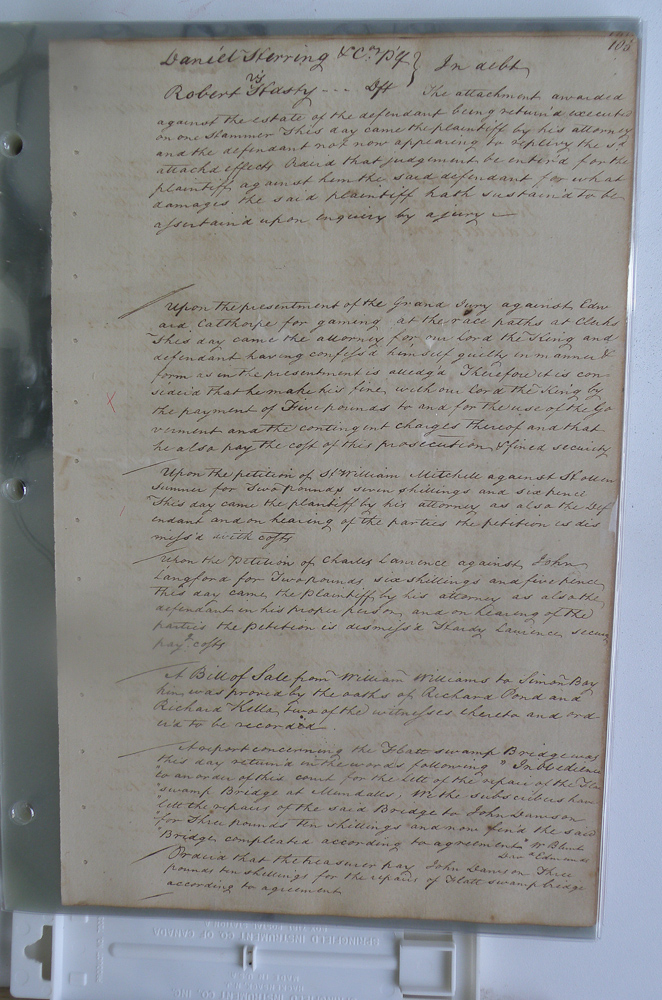 103
Daniel Herring & Co. Plf } In debt
vs
Robert Hasty --- Dft The attachment awarded
against the estate of the defendant being return'd executed
on one Hammer This day came the plaintiff by his attorney
and the defendant not now appearing to replevy the sd
attachd effects Orderd that judgement be enter'd for the
plaintiff against him the said defendant for what
damages the said plaintiff hath sustain'd to be
assertain'd upon enquiry by a jury
Upon the presentment of the Grand Jury against Edw
ard Calthorpe for gaming at the race paths at Clerks
This day came the attorney for our Lord the King and
defendant having confess'd himself guilty in manner &
form as in the presentment is alledg'd Therefore it is con
sider'd that he make his fine with our Lord the King by
the payment of Five pounds to and for the use of the Go
verment and the contingent charges thereof and that
he also pay the cost of this prosecution & find security
Upon the petition of Sr William Mitchell against
Sumner for Two pounds seven shillings and six pence
This day came the plantiff by his attorney as also the Def
endant and on hearing of the parties the petition is dis
miss'd with costs
Upon the Petition of Charles Lawrence against John
Langford for Two pounds six shillings and five pence
this day came the Plaintiff by his attorney as also the
defendant in his proper person and on hearing of the
parties the Petition is dismiss'd Hardy Lawrence secury
payt costs
A Bill of Sale from William Williams to Simon Boy
kin was proved by the oaths of Richard Pond and
Richard Kello Two of the witnesses thereto and ord
er'd to be recorded.
A report concerning the Flatt swamp Bridge was
this day return'd in the words following "In obedience
"to an order of this court for the lett of the repair of the Flatt
"swamp Bridge at Mundalls, We the subscribers have
"lett the repairs of the said Bridge to John Dawson
"for Three pounds ten shillings and now find the said
"Bridge compleated according to agreement" W Blunt
Edmunds
Order'd that the treasurer pay John Dawson Three
pounds ten shillings for the repairs of Flatt swamp bridge
according to agreement
SPRINGFIELD INSTRUMENT CO. OF CANADA